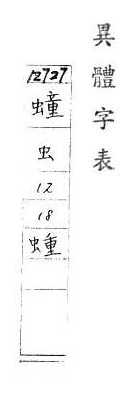 異體字表
12727
蝩
虫
12
18
蝩